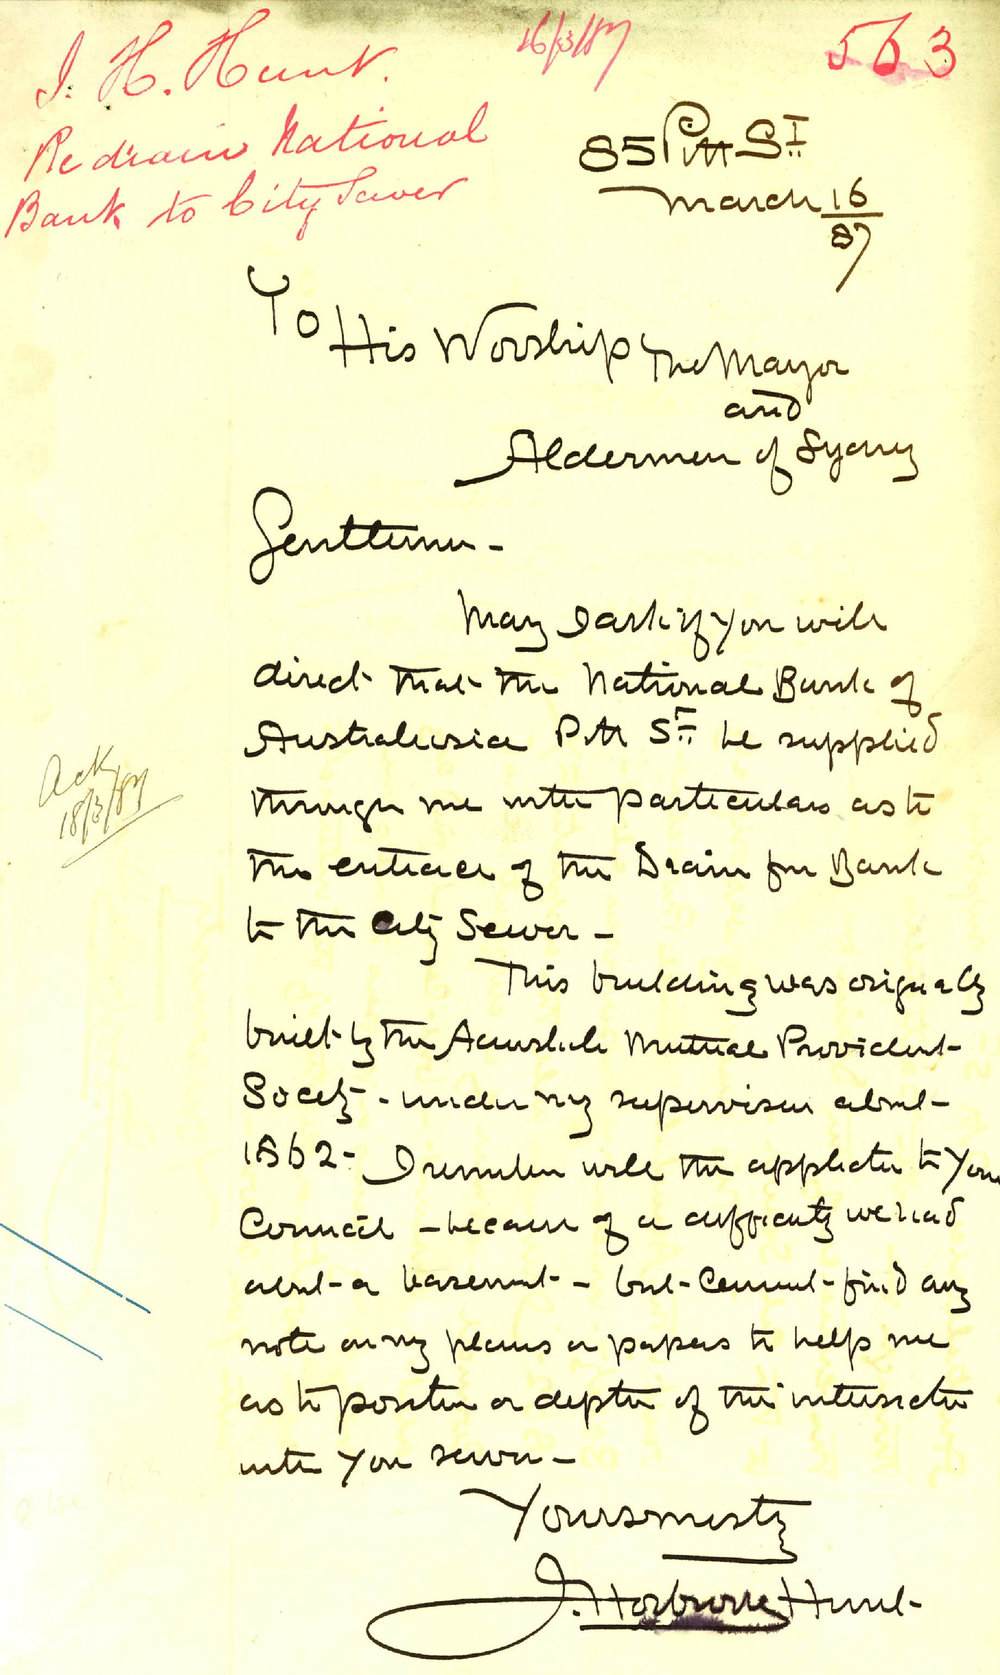 J. H. Hunt.
Re drain National
Bank to City Sewer
16/3/87
563
85 Pitt St
March 16/87
To
His Worship The Mayor
and
Aldermen of Sydney
Gentlemen -
May I ask if you will
direct that the National Bank of
Australasia Pitt St be supplied
through me with particulars as to
the entrance of the Drain for Bank
to the City Sewer -
This building was originally
built by the Australian Mutual Provident
Society - under my supervision about
1862 - I remember well the application to your
Council - because of a difficulty we had
about a basement - but cannot find any
note on my plans or papers to help me
as to position or depth of the intersection
with your sewer -
Yours
J. Horbury Hunt
Ack
18/3/87